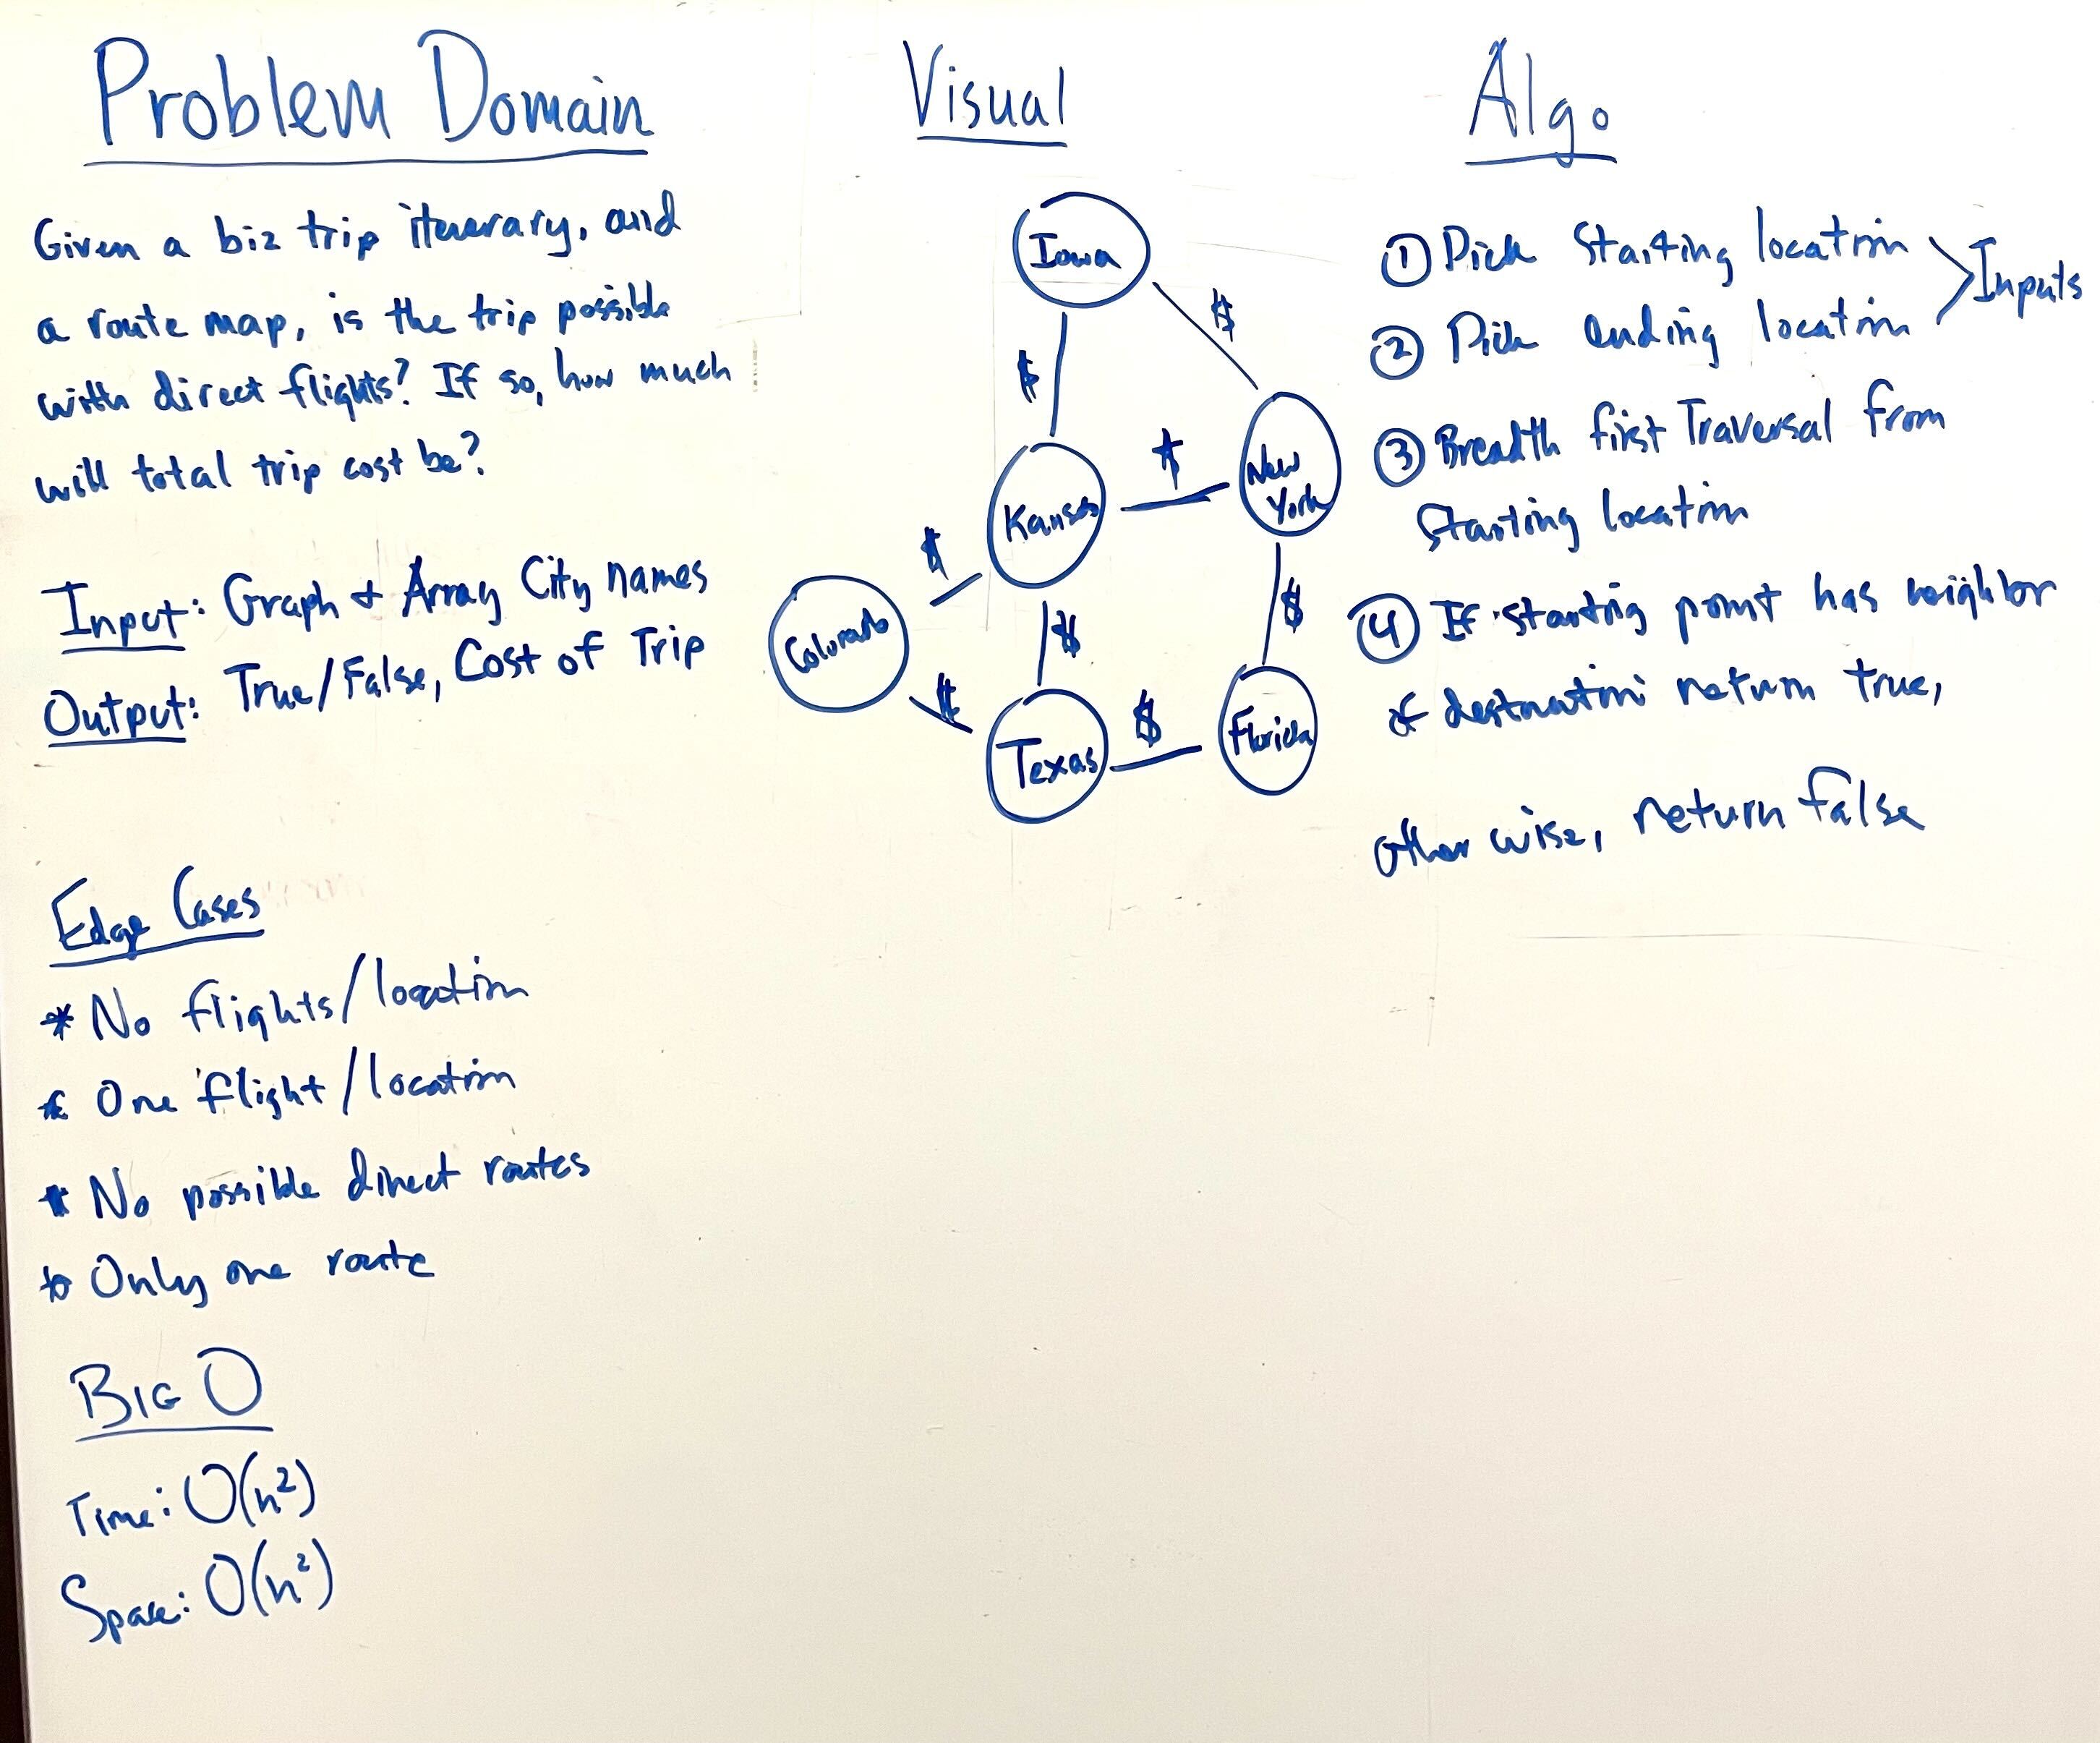 Problem Domain
Given a biz trip itenerary, and
a route map, is the trip possible
with direct flights? If so, how much
will total trip cost be?
Input: Graph + Array City names
Output: True/False, Cost of Trip
Edge Cases
* No flights/location
* One flight/location
* No possible direct routes
* Only one route
BIG O
Time: O(n²)
Space: O(n²)
Visual
Iowa
$
$
Kansas
$
New
York
$
Colorado
$
$
$
Texas
$
Florida
Algo
① Pick Starting location
② Pick ending location
> Inputs
③ Breadth first Traversal from
Starting location
④ If starting point has neighbor
of destination return true,
otherwise, return false